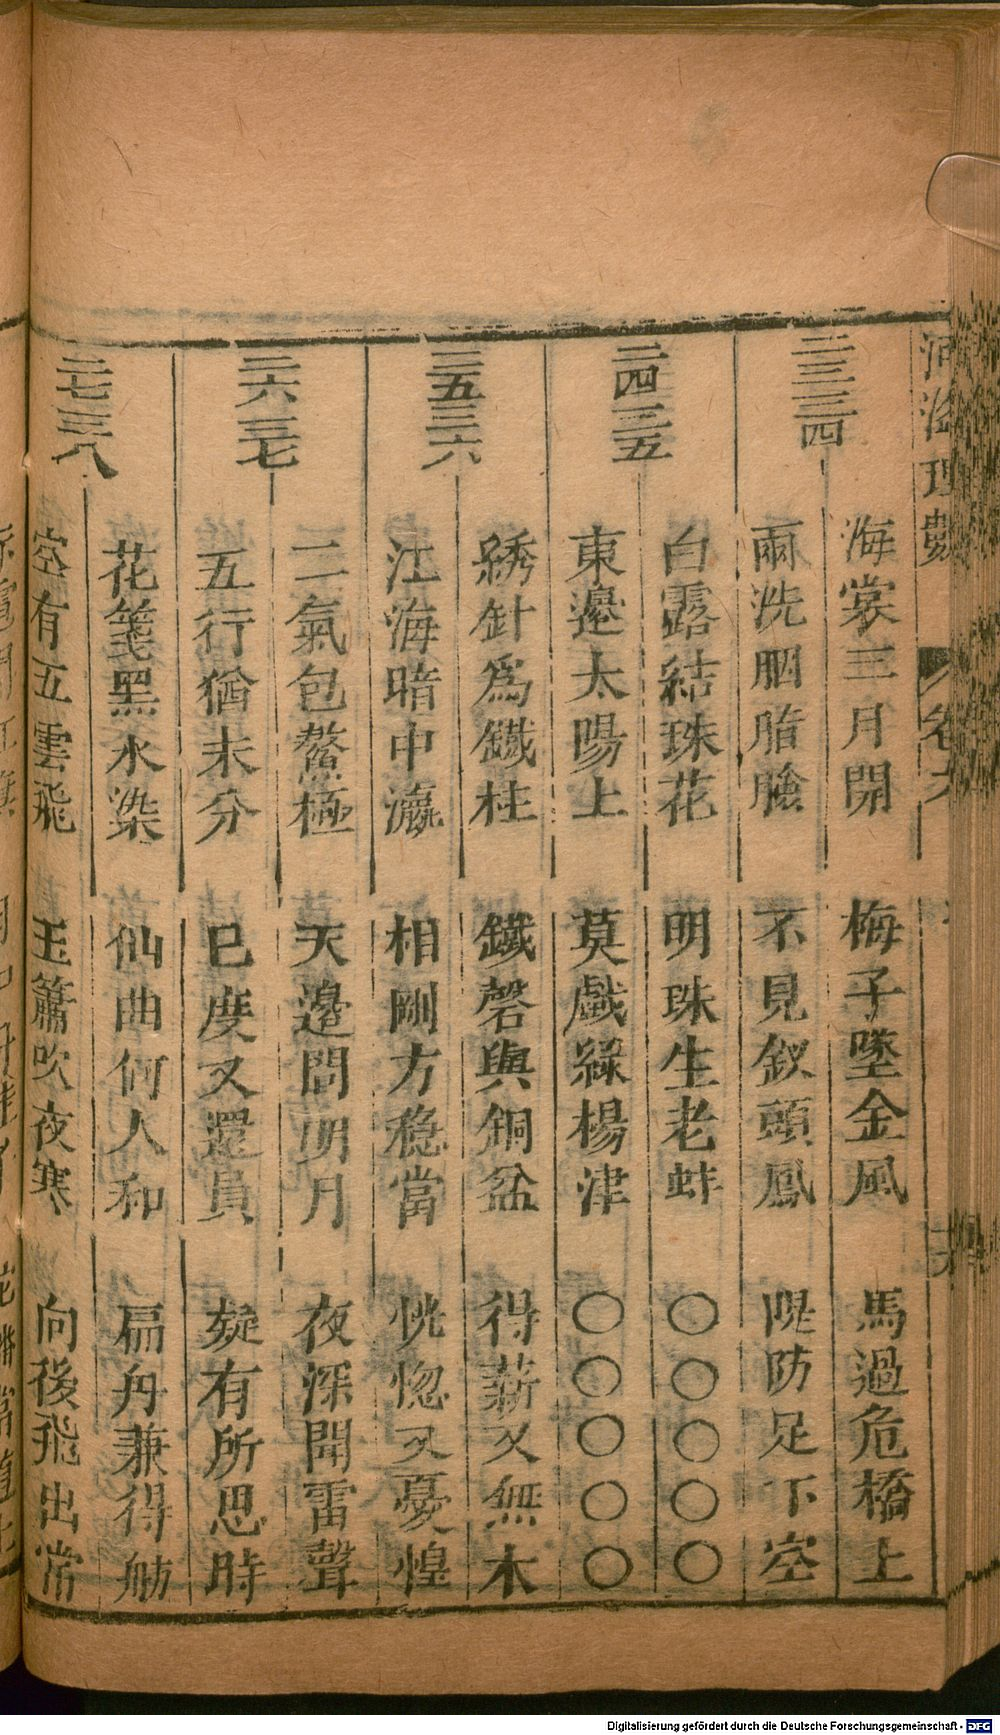 河洛理數 卷六
二三三四
海棠三月開 梅子墜金風 馬過危橋上
雨洗胭脂臉 不見釵頭鳳 隄防足下空
二四三五
白露結珠花 明珠生老蚌 ○○○○○
東邊太陽上 莫戲綠楊津 ○○○○○
二五三六
綉針爲鐵柱 鐵磬與銅盆 得薪又無木
江海暗中瀛 相剛方穩當 恍惚又憂惶
二六三七
二氣包鰲極 天邊問明月 夜深聞雷聲
五行猶未分 已度又還員 疑有所思時
二七三八
花箋黑水染 仙曲何人和 扁舟兼得舫
空有五雲飛 玉簫吹夜寒 向後飛出常
Digitalisierung gefördert durch die Deutsche Forschungsgemeinschaft - DFG